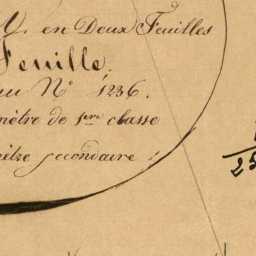 V. en Deux Feuilles
Feuille.
au N° 1236.
mètre de 1ère classe
mètre secondaire
25